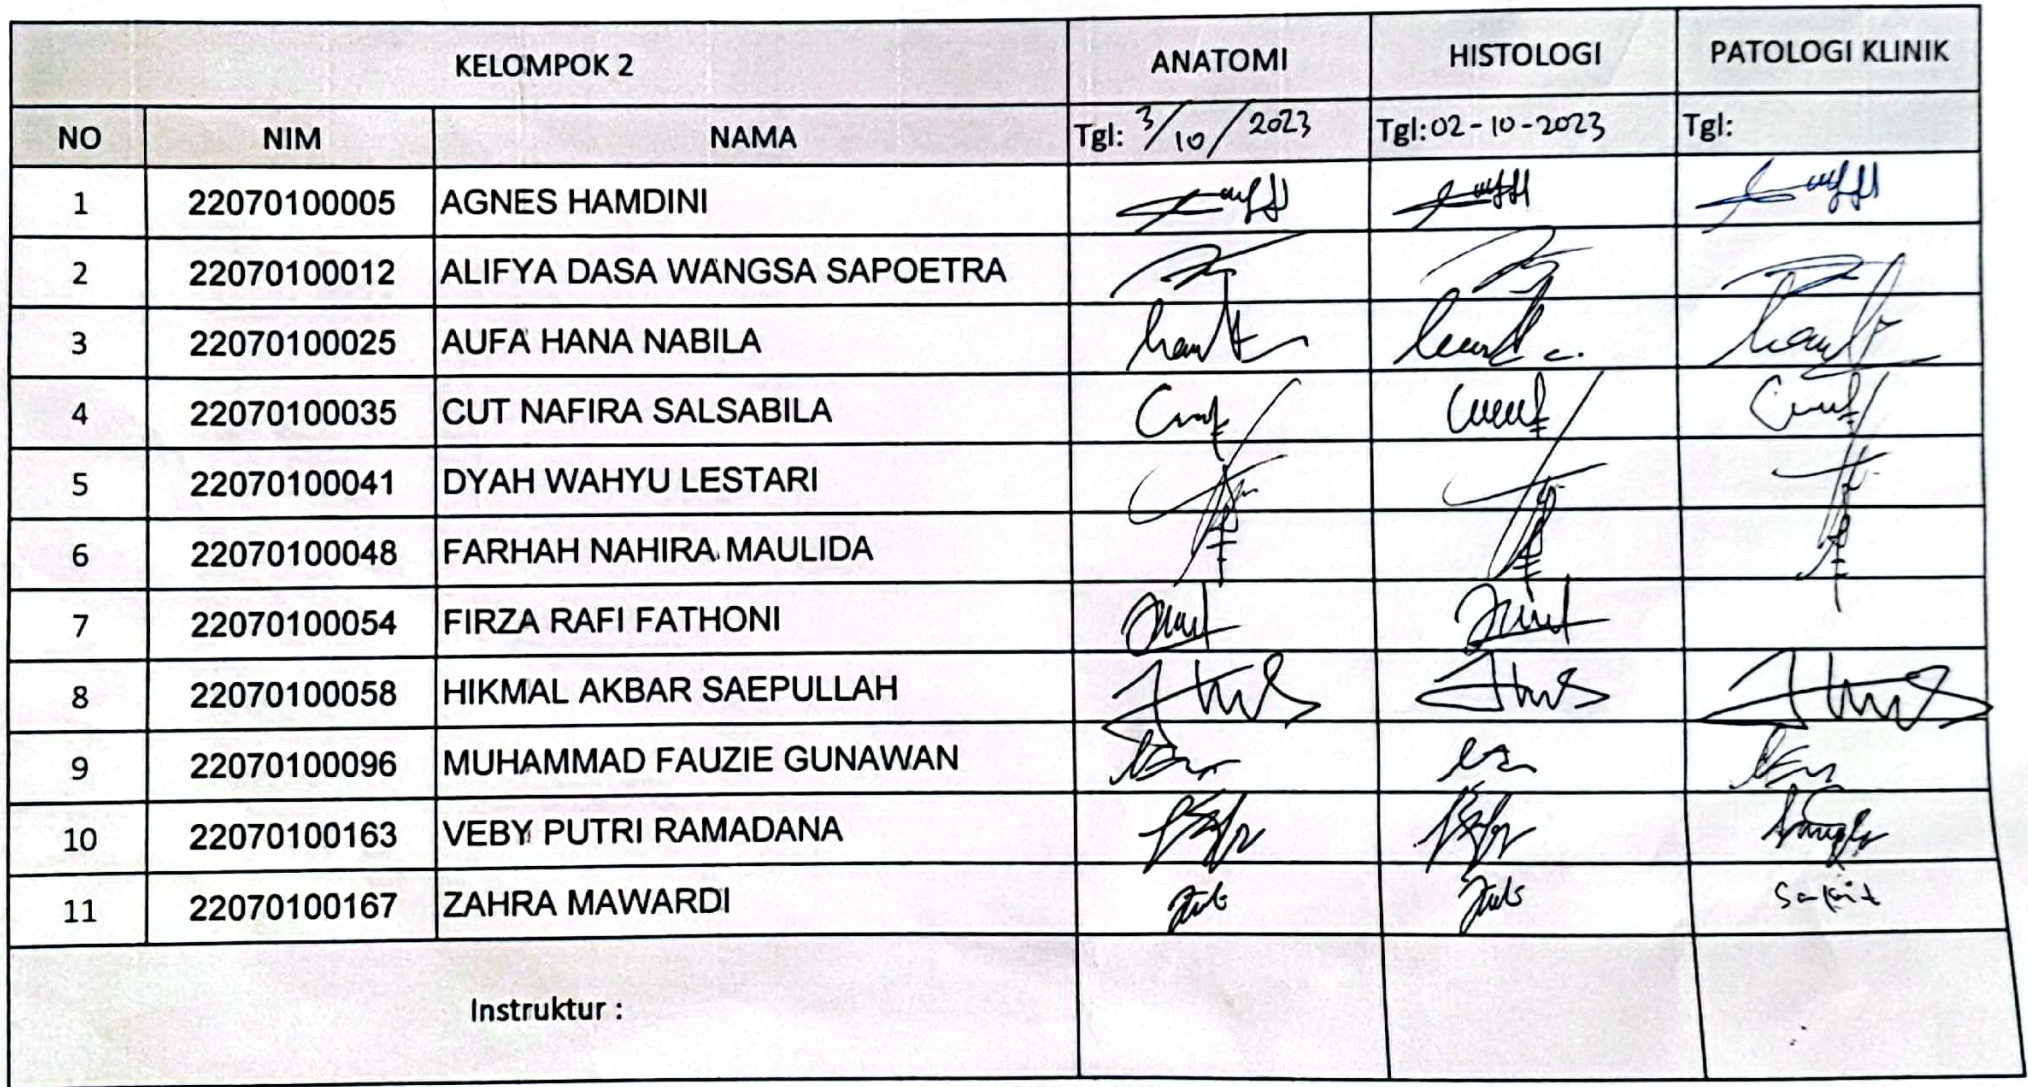 KELOMPOK 2 ANATOMI HISTOLOGI PATOLOGI KLINIK
NO NIM NAMA Tgl: 3/10/2023 Tgl: 02-10-2023 Tgl:
1 22070100005 AGNES HAMDINI
2 22070100012 ALIFYA DASA WANGSA SAPOETRA
3 22070100025 AUFA HANA NABILA
4 22070100035 CUT NAFIRA SALSABILA
5 22070100041 DYAH WAHYU LESTARI
6 22070100048 FARHAH NAHIRA MAULIDA
7 22070100054 FIRZA RAFI FATHONI
8 22070100058 HIKMAL AKBAR SAEPULLAH
9 22070100096 MUHAMMAD FAUZIE GUNAWAN
10 22070100163 VEBY PUTRI RAMADANA
11 22070100167 ZAHRA MAWARDI Sakit
Instruktur :